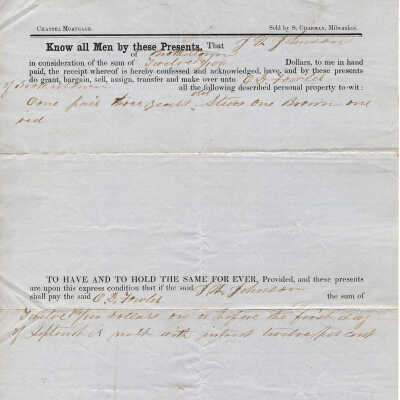 CHATTEL MORTGAGE. Sold by S. CHAPMAN, Milwaukee.
Know all Men by these Presents, That J. W. Johnson
of
in consideration of the sum of Twelve Dollars, to me in hand
paid, the receipt whereof is hereby confessed and acknowledged, have, and by these presents
do grant, bargain, sell, assign, transfer and make over unto C. D. Fowler
of all the following described personal property to wit:
One pair three years old Steers one Brown one
red
TO HAVE AND TO HOLD THE SAME FOR EVER, Provided, and these presents
are upon this express condition that if the said J. W. Johnson
shall pay the said C. D. Fowler the sum of
Twelve dollars on or before the first day
of with twelve per cent